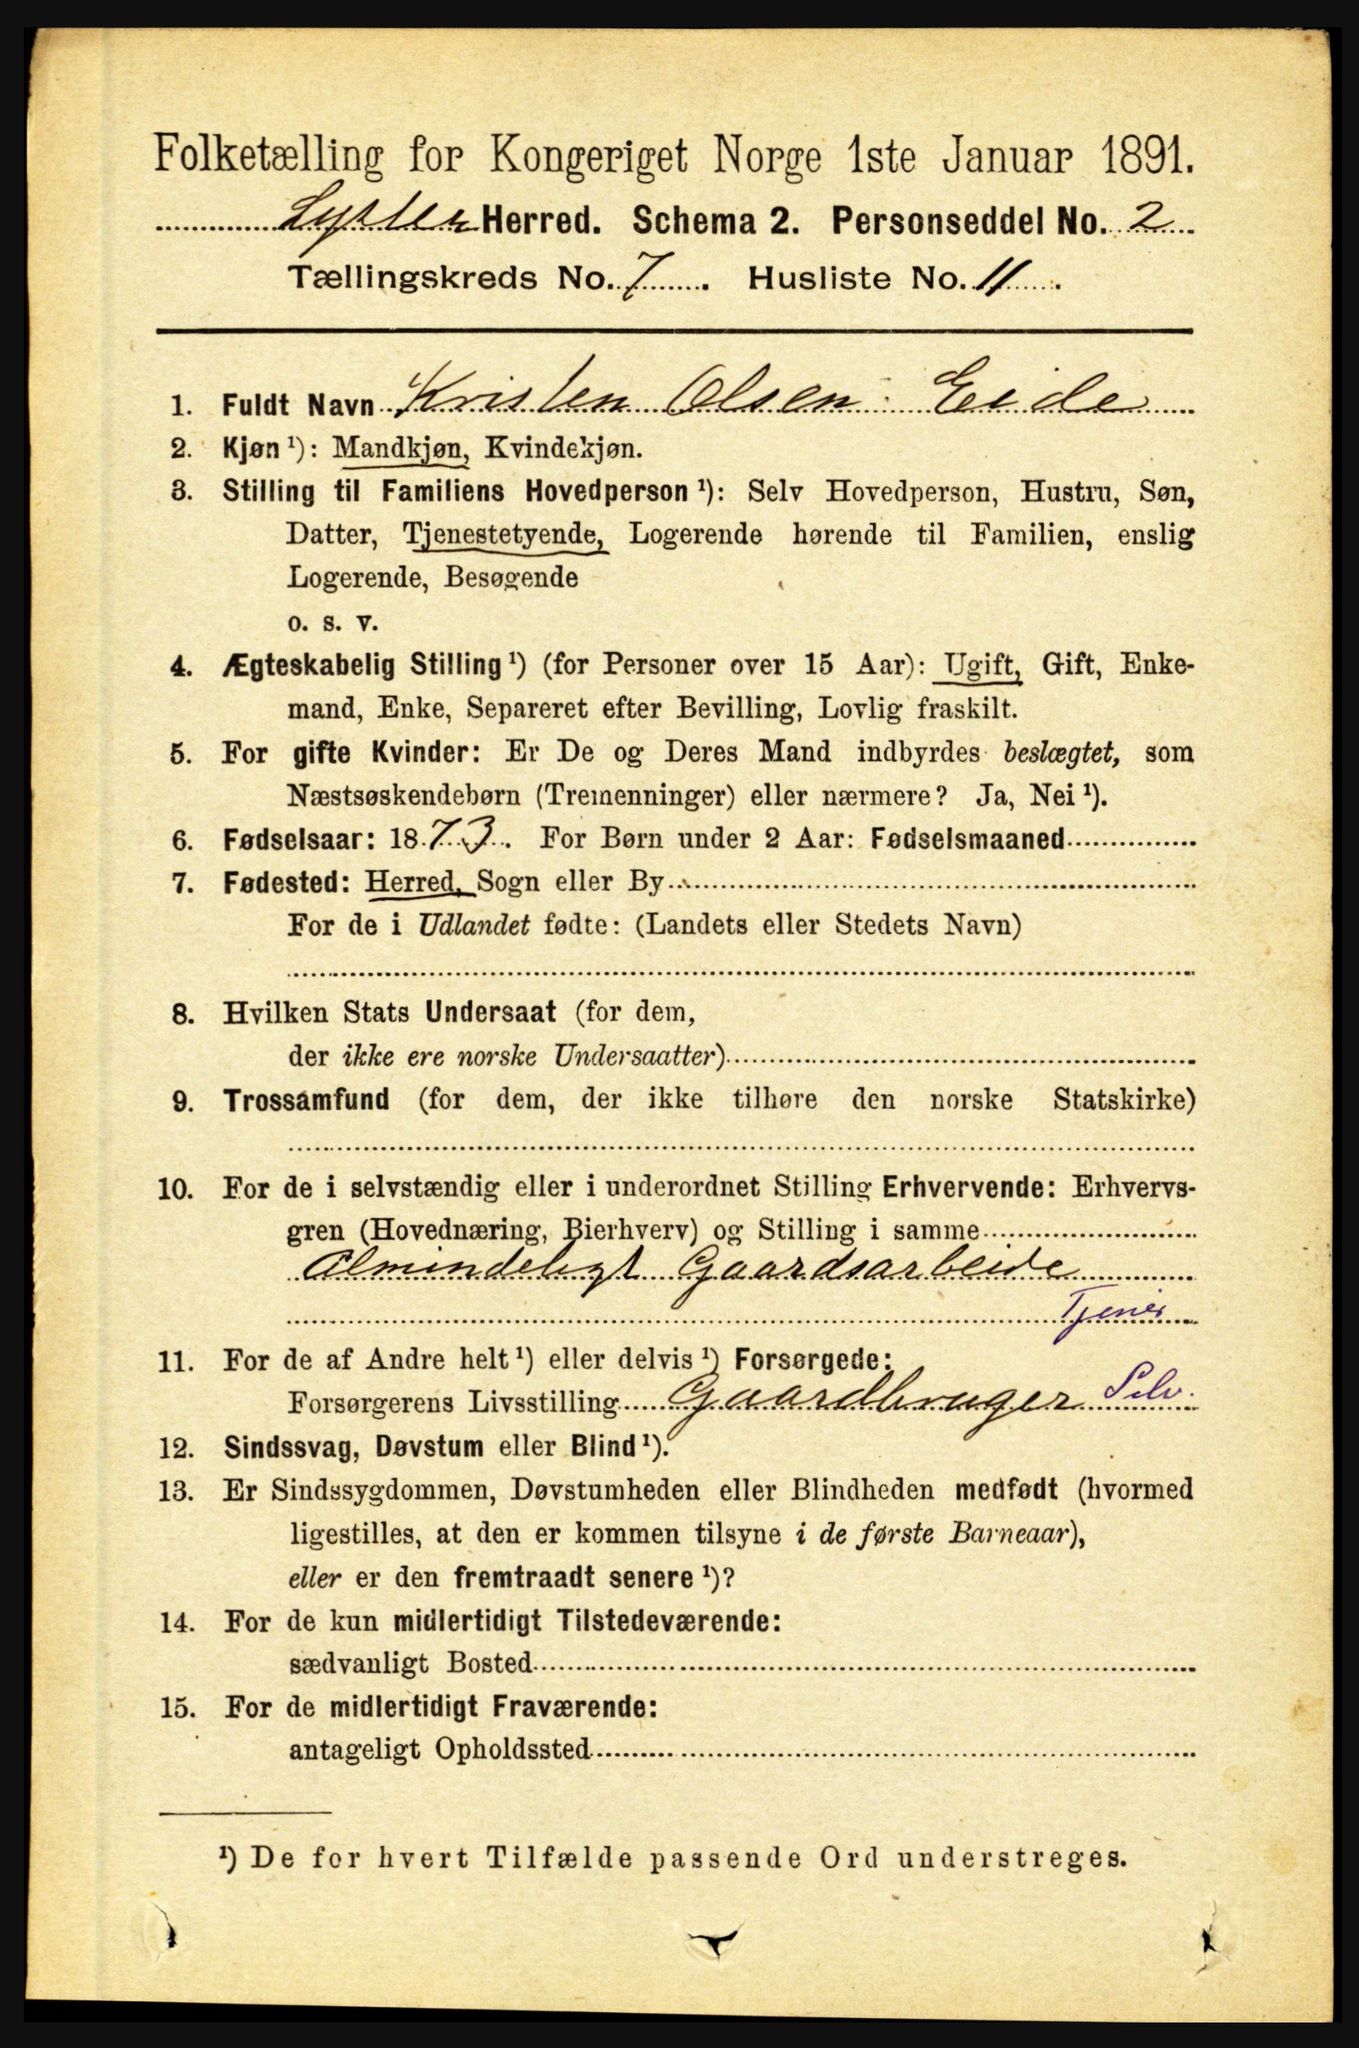 Folketælling for Kongeriget Norge 1ste Januar 1891.
Lyster Herred. Schema 2. Personseddel No. 2
Tællingskreds No. 7. Husliste No. 11.
1. Fuldt Navn Kristen Olsen Eide
2. Kjøn ¹): Mandkjøn, Kvindekjøn.
3. Stilling til Familiens Hovedperson ¹): Selv Hovedperson, Hustru, Søn,
Datter, Tjenestetyende, Logerende hørende til Familien, enslig
Logerende, Besøgende
o. s. v.
4. Ægteskabelig Stilling ¹) (for Personer over 15 Aar): Ugift, Gift, Enke-
mand, Enke, Separeret efter Bevilling, Lovlig fraskilt.
5. For gifte Kvinder: Er De og Deres Mand indbyrdes beslægtet, som
Næstsøskendebørn (Tremenninger) eller nærmere? Ja, Nei ¹).
6. Fødselsaar: 1873. For Børn under 2 Aar: Fødselsmaaned
7. Fødested: Herred, Sogn eller By
For de i Udlandet fødte: (Landets eller Stedets Navn)
8. Hvilken Stats Undersaat (for dem,
der ikke ere norske Undersaatter)
9. Trossamfund (for dem, der ikke tilhøre den norske Statskirke)
10. For de i selvstændig eller i underordnet Stilling Erhvervende: Erhvervs-
gren (Hovednæring, Bierhverv) og Stilling i samme
Almindeligt Gaardsarbeide
Tjener
11. For de af Andre helt ¹) eller delvis ¹) Forsørgede:
Forsørgerens Livsstilling Gaardbruger Selv.
12. Sindssvag, Døvstum eller Blind ¹).
13. Er Sindssygdommen, Døvstumheden eller Blindheden medfødt (hvormed
ligestilles, at den er kommen tilsyne i de første Barneaar),
eller er den fremtraadt senere ¹)?
14. For de kun midlertidigt Tilstedeværende:
sædvanligt Bosted
15. For de midlertidigt Fraværende:
antageligt Opholdssted
¹) De for hvert Tilfælde passende Ord understreges.